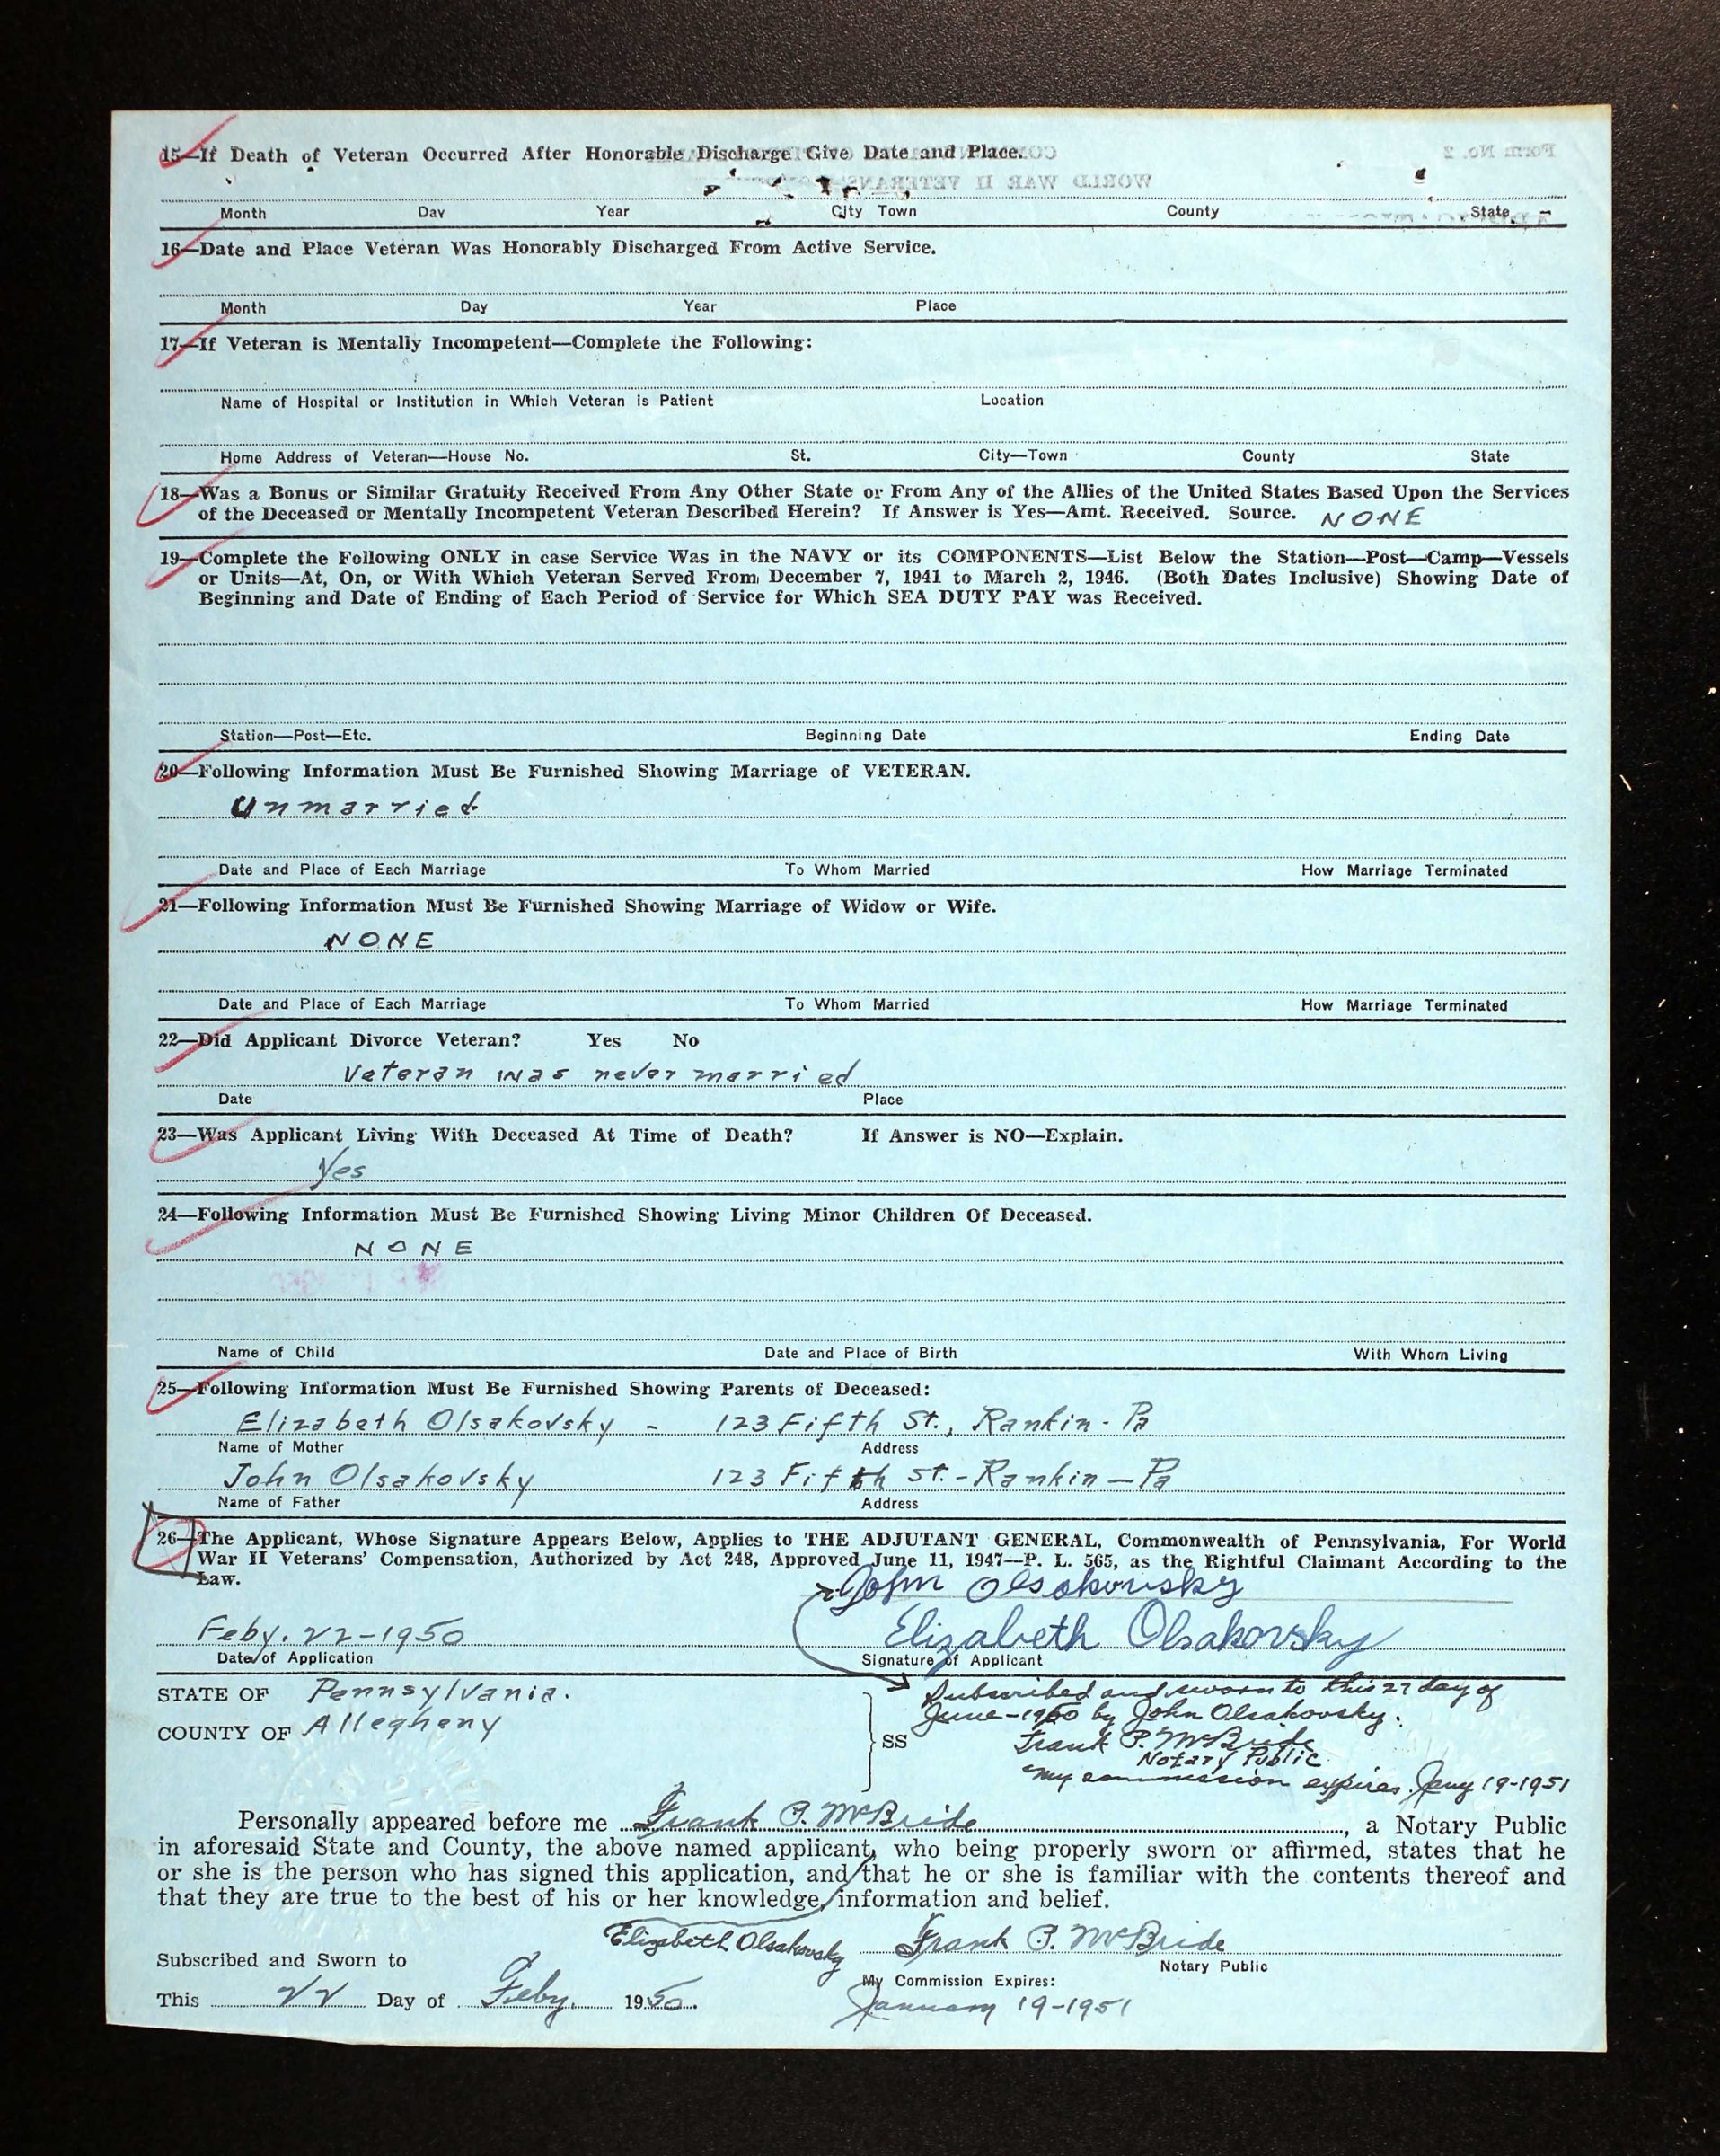 15—If Death of Veteran Occurred After Honorable Discharge Give Date and Place.
Form No. 2
WORLD WAR II VETERANS'
Month Day Year City Town County State
16—Date and Place Veteran Was Honorably Discharged From Active Service.
Month Day Year Place
17—If Veteran is Mentally Incompetent—Complete the Following:
Name of Hospital or Institution in Which Veteran is Patient Location
Home Address of Veteran—House No. St. City—Town County State
18—Was a Bonus or Similar Gratuity Received From Any Other State or From Any of the Allies of the United States Based Upon the Services
of the Deceased or Mentally Incompetent Veteran Described Herein? If Answer is Yes—Amt. Received. Source. NONE
19—Complete the Following ONLY in case Service Was in the NAVY or its COMPONENTS—List Below the Station—Post—Camp—Vessels
or Units—At, On, or With Which Veteran Served From December 7, 1941 to March 2, 1946. (Both Dates Inclusive) Showing Date of
Beginning and Date of Ending of Each Period of Service for Which SEA DUTY PAY was Received.
Station—Post—Etc. Beginning Date Ending Date
20—Following Information Must Be Furnished Showing Marriage of VETERAN.
Unmarried
Date and Place of Each Marriage To Whom Married How Marriage Terminated
21—Following Information Must Be Furnished Showing Marriage of Widow or Wife.
NONE
Date and Place of Each Marriage To Whom Married How Marriage Terminated
22—Did Applicant Divorce Veteran? Yes No
Veteran was never married
Date Place
23—Was Applicant Living With Deceased At Time of Death? If Answer is NO—Explain.
Yes
24—Following Information Must Be Furnished Showing Living Minor Children Of Deceased.
NONE
Name of Child Date and Place of Birth With Whom Living
25—Following Information Must Be Furnished Showing Parents of Deceased:
Elizabeth Olsakovsky - 123 Fifth St., Rankin - Pa
Name of Mother Address
John Olsakovsky 123 Fifth St. - Rankin - Pa
Name of Father Address
26—The Applicant, Whose Signature Appears Below, Applies to THE ADJUTANT GENERAL, Commonwealth of Pennsylvania, For World
War II Veterans' Compensation, Authorized by Act 248, Approved June 11, 1947—P. L. 565, as the Rightful Claimant According to the
Law.
John Olsakovsky
Feby. 22-1950 Elizabeth Olsakovsky
Date of Application Signature of Applicant
STATE OF Pennsylvania.
COUNTY OF Allegheny
SS
Subscribed and sworn to this 27 day of
June-1950 by John Olsakovsky.
Frank P. McBride
Notary Public
My commission expires Jany 19-1951
Personally appeared before me Frank P. McBride, a Notary Public
in aforesaid State and County, the above named applicant, who being properly sworn or affirmed, states that he
or she is the person who has signed this application, and that he or she is familiar with the contents thereof and
that they are true to the best of his or her knowledge, information and belief.
Elizabeth Olsakovsky Frank P. McBride
Subscribed and Sworn to Notary Public
My Commission Expires:
This 22 Day of Feby. 1950. January 19-1951